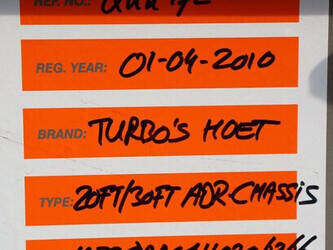 REF. NO.:
REG. YEAR: 01-04-2010
BRAND: TURBO'S HOET
TYPE: 20FT/30FT ADR-CHASSIS